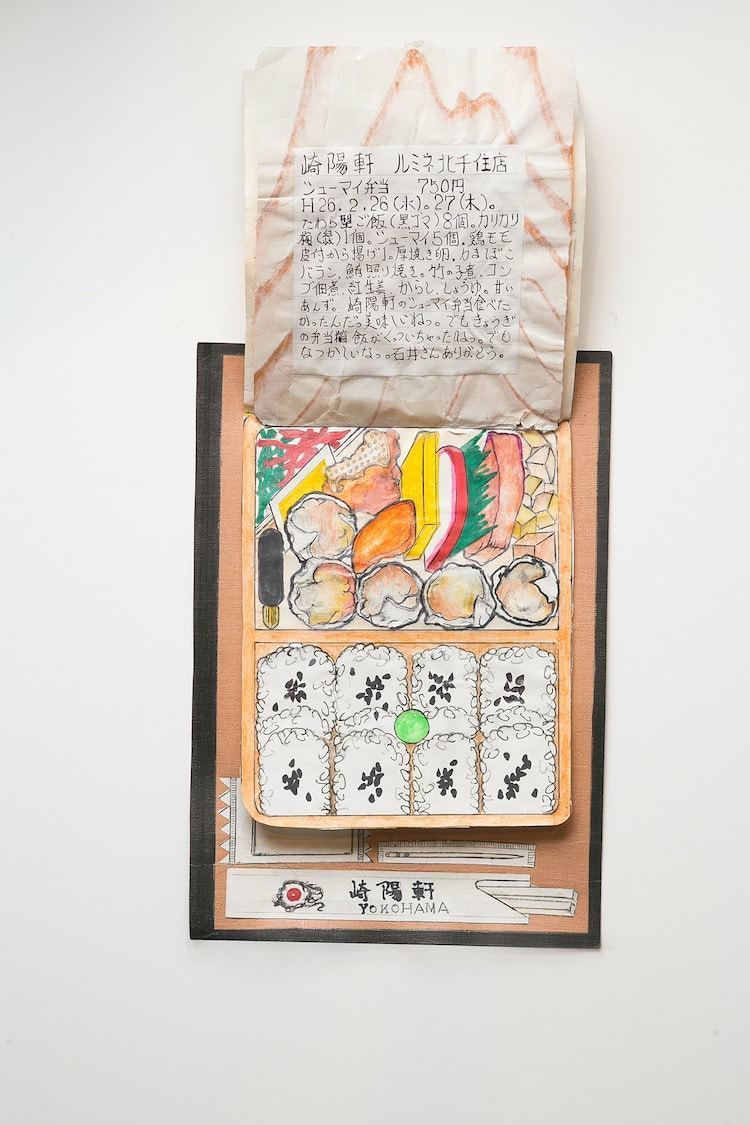 崎陽軒 ルミネ北千住店
シューマイ弁当 750円
H26.2.26(水)。27(木)。
たわら型ご飯(黒ゴマ)8個。カリカリ
梅(緑)1個。シューマイ5個。鶏モモ
皮付から揚げ1。厚焼き卵。かまぼこ
バラン。鮪照り焼き。竹の子煮。コン
ブ佃煮。紅生姜。からし。しょうゆ。甘い
あんず。崎陽軒のシューマイ弁当食べた
かったんだ。美味いねっ。でもきょうぎ
の弁当箱飯がくっついちゃったねっ。でも
なつかしいなっ。石井さんありがとう。
崎陽軒
YOKOHAMA